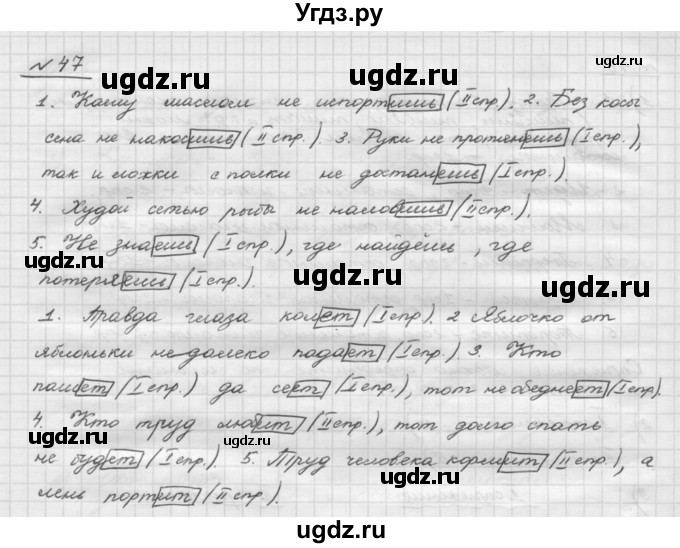 Угдз.ру
№ 47
1. Кашу маслом не испортишь (II спр.). 2. Без косы
сена не накосишь (II спр.). 3. Руки не протянешь (I спр.),
так и ложки с полки не достанешь (I спр.).
4. Худой сетью рыбы не наловишь (II спр.).
5. Не знаешь (I спр.), где найдёшь, где
потеряешь (I спр.).
1. Правда глаза колет (I спр.). 2 Яблочко от
яблоньки недалеко падает (I спр.) 3. Кто
пашет (I спр.) да сеет (I спр.), тот не обеднеет (I спр).
4. Кто труд любит (II спр.), тот долго спать
не будет (I спр.). 5. Труд человека кормит (II спр.), а
лень портит (II спр.).
ugdz.ru
ugdz.ru
ugdz.ru
ugdz.ru
ugdz.ru
ugdz.ru
ugdz.ru
ugdz.ru
ugdz.ru
ugdz.ru
ugdz.ru
ugdz.ru
ugdz.ru
ugdz.ru